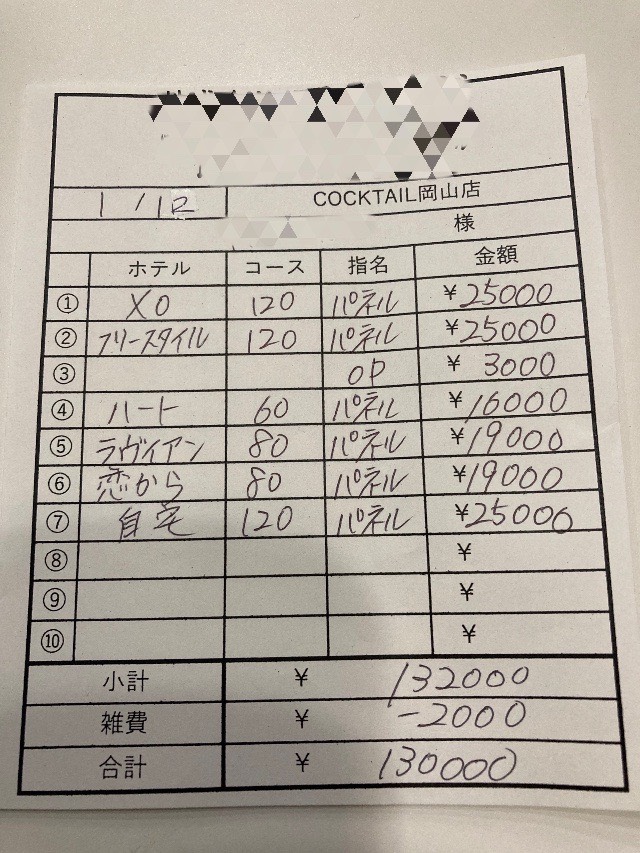 1/1
COCKTAIL岡山店
様
ホテル コース 指名 金額
① XO 120 パネル ¥25000
② フリースタイル 120 パネル ¥25000
③ OP ¥3000
④ ハート 60 パネル ¥16000
⑤ ラヴィアン 80 パネル ¥19000
⑥ 恋から 80 パネル ¥19000
⑦ 自宅 120 パネル ¥25000
⑧ ¥
⑨ ¥
⑩ ¥
小計 ¥ 132000
雑費 ¥ -2000
合計 ¥ 130000